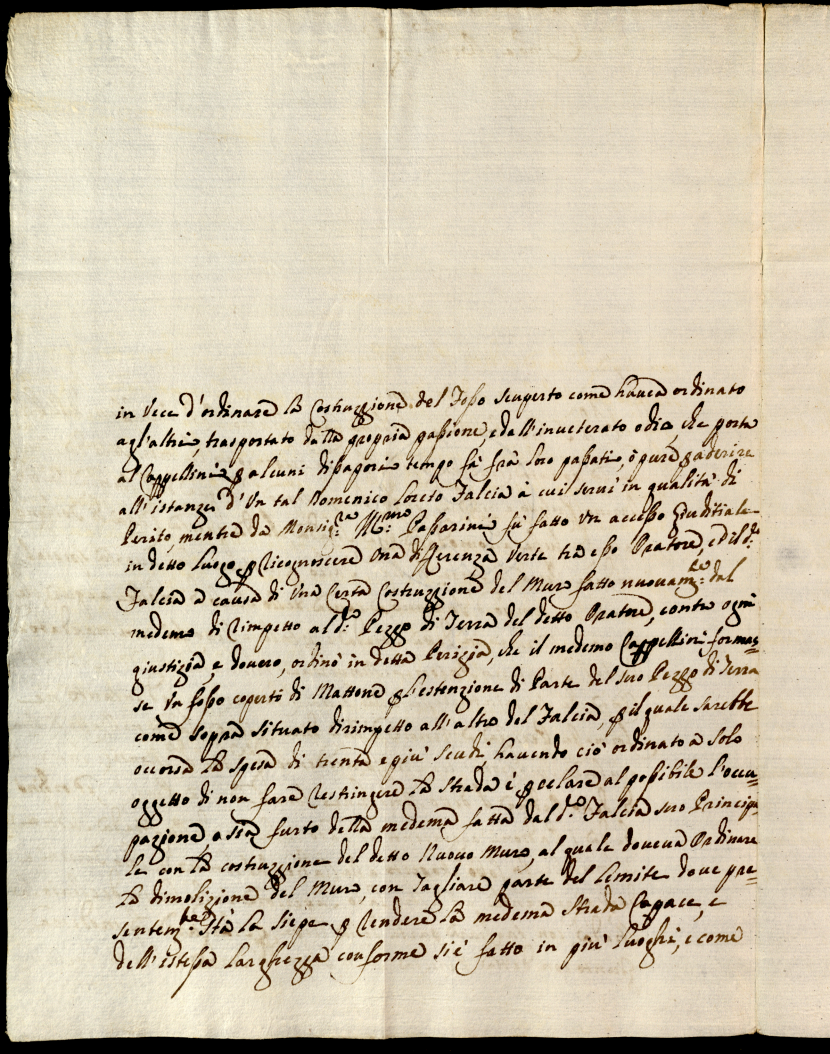 in Vece d'ordinare la Costruzzione del Fosso scuperto come hauea ordinato
agl'altri, trasportato dalla propria passione, e dall'inueterato odio, che porta
al Cappellini p alcuni disapori tempo fà frà loro passati, ò pure p aderire
all'istanze d'Un tal Domenico Loreto Falcia à cui serui in qualità di
Perito, mentre da Monsig:re Ill:mo Passarini fù fatto Un accesso Giuditiale
in detto Luogo p ricognoscere Una differenza Verte trà esso Oratore, ed il d:o
Falcia a causa di Una Certa Costruzzione del Muro fatto nuouam:te dal
medemo di rimpetto al d:o Pezzo di Terra del detto Oratore, contro ogni
giustizia, e douero, ordinò in detta Perizia, che il medemo Cappellini formas=
se Un fosso coperto di Mattone p l'estenzione di Parte del suo Pezzo di Terra
come sopra situato dirimpetto all'altro del Falcia, p il quale sarebbe
ocorsa la spesa di trenta e più scudi, hauendo ciò ordinato a solo
oggetto di non fare restringere la strada è p celare al possibile l'occu=
pazione, o sia furto della medema fatta dal d:o Falcia suo Principa=
le con la costruzzione del detto Nuouo Muro, al quale doueua Ordinare
la dimolizione del Muro, con Tagliare parte del Limite doue pre=
sentem:te Stà la Siepe p rendere la medema Strada Capace, e
dell'istessa Larghezza conforme si è fatto in più luoghi, e come